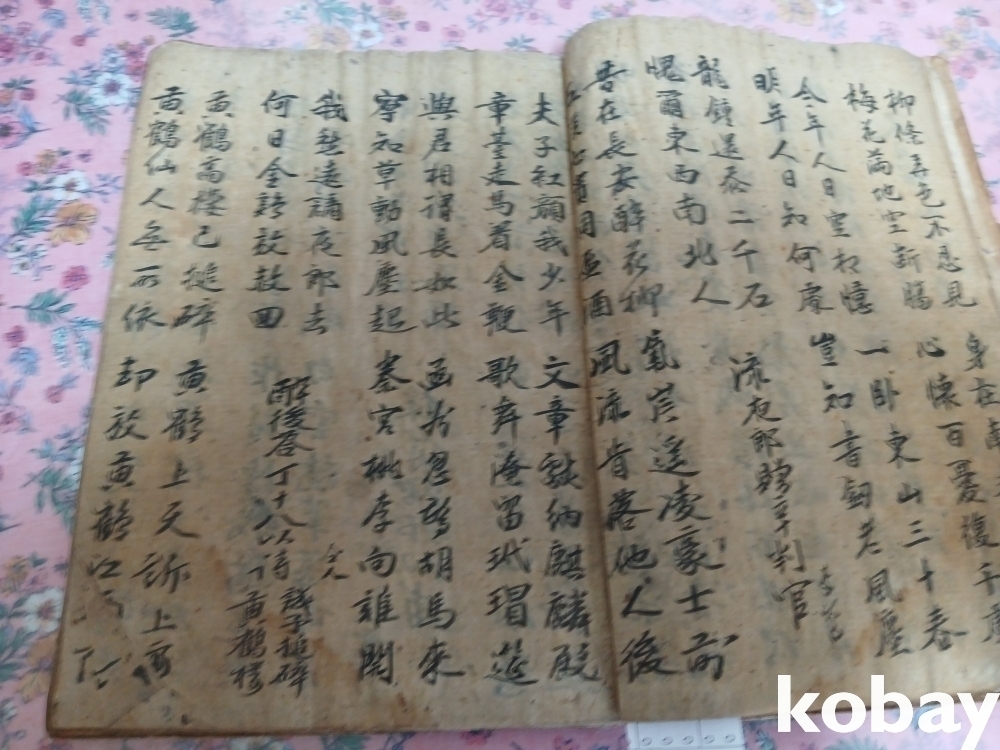 柳條弄色不忍見
梅花滿地空斷腸
身在
心懷百憂復千
今年人日空相憶
明年人日知何處
一卧東山三十春
豈知書劍老風塵
龍鍾還忝二千石
愧爾東西南北人
流夜郎贈辛判官
昔在長安醉花柳
同 酒
氣岸遙凌豪士前
風流肯落他人後
夫子紅顔我少年
章臺走馬着金鞭
文章獻納麒麟殿
歌舞淹留玳瑁筵
與君相得長如此
寧知草動風塵起
函谷忽驚胡馬來
秦宮桃李向誰開
我愁遠謫夜郎去
何日金鷄放赦回
醉後答丁十八以詩
譏予搥碎
黃鶴樓
仝人
黃鶴高樓已搥碎
黃鶴仙人無所依
黃鶴上天訴上帝
却放黃鶴江南
kobay